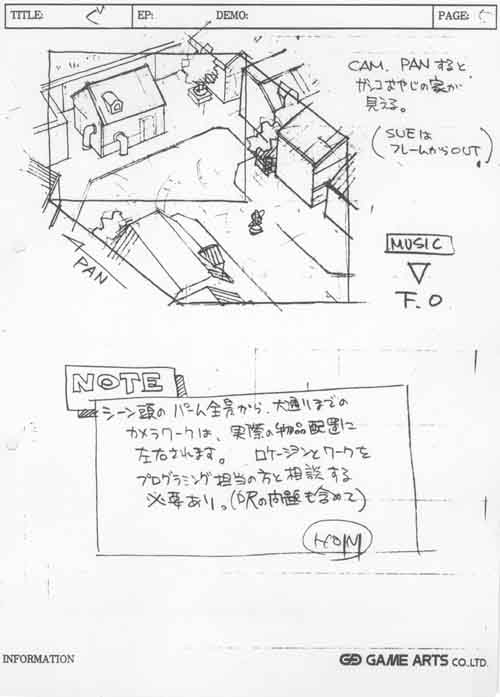 TITLE: EP: DEMO: PAGE:
CAM. PANすると、
ガンコおやじの家が
見える。
(SUEは
フレームからOUT)
PAN
MUSIC
F.O
NOTE
シーン頭のパーム全景から、大通りまでの
カメラワークは、実際の物品配置に
左右されます。 ロケーションとワークを
プログラミング担当の方と相談する
必要あり。(の問題も含めて)
INFORMATION
GAME ARTS CO.,LTD.